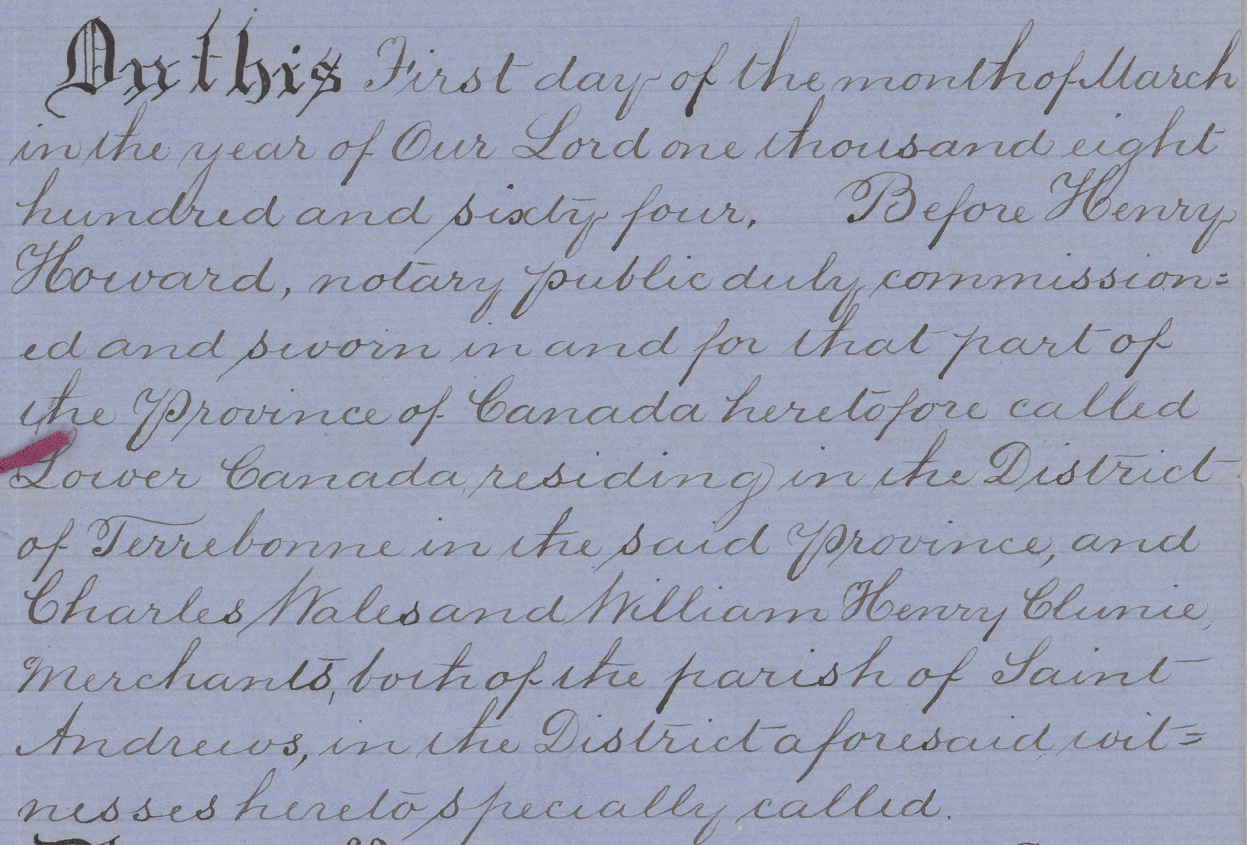 On this First day of the month of March
in the year of Our Lord one thousand eight
hundred and sixty four. Before Henry
Howard, notary public duly commission=
ed and sworn in and for that part of
the Province of Canada heretofore called
Lower Canada residing in the District
of Terrebonne in the said Province, and
Charles Wales and William Henry Clunie,
Merchants, both of the parish of Saint
Andrews, in the District aforesaid wit=
nesses hereto specially called.